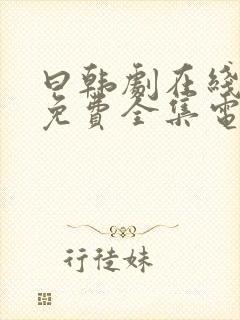 曰韩劇在綫
免費全集電
行徒妹